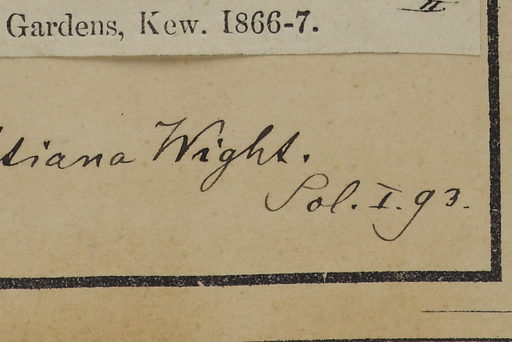 Gardens, Kew. 1866-7.
tiana Wight.
Sol. I. 93.